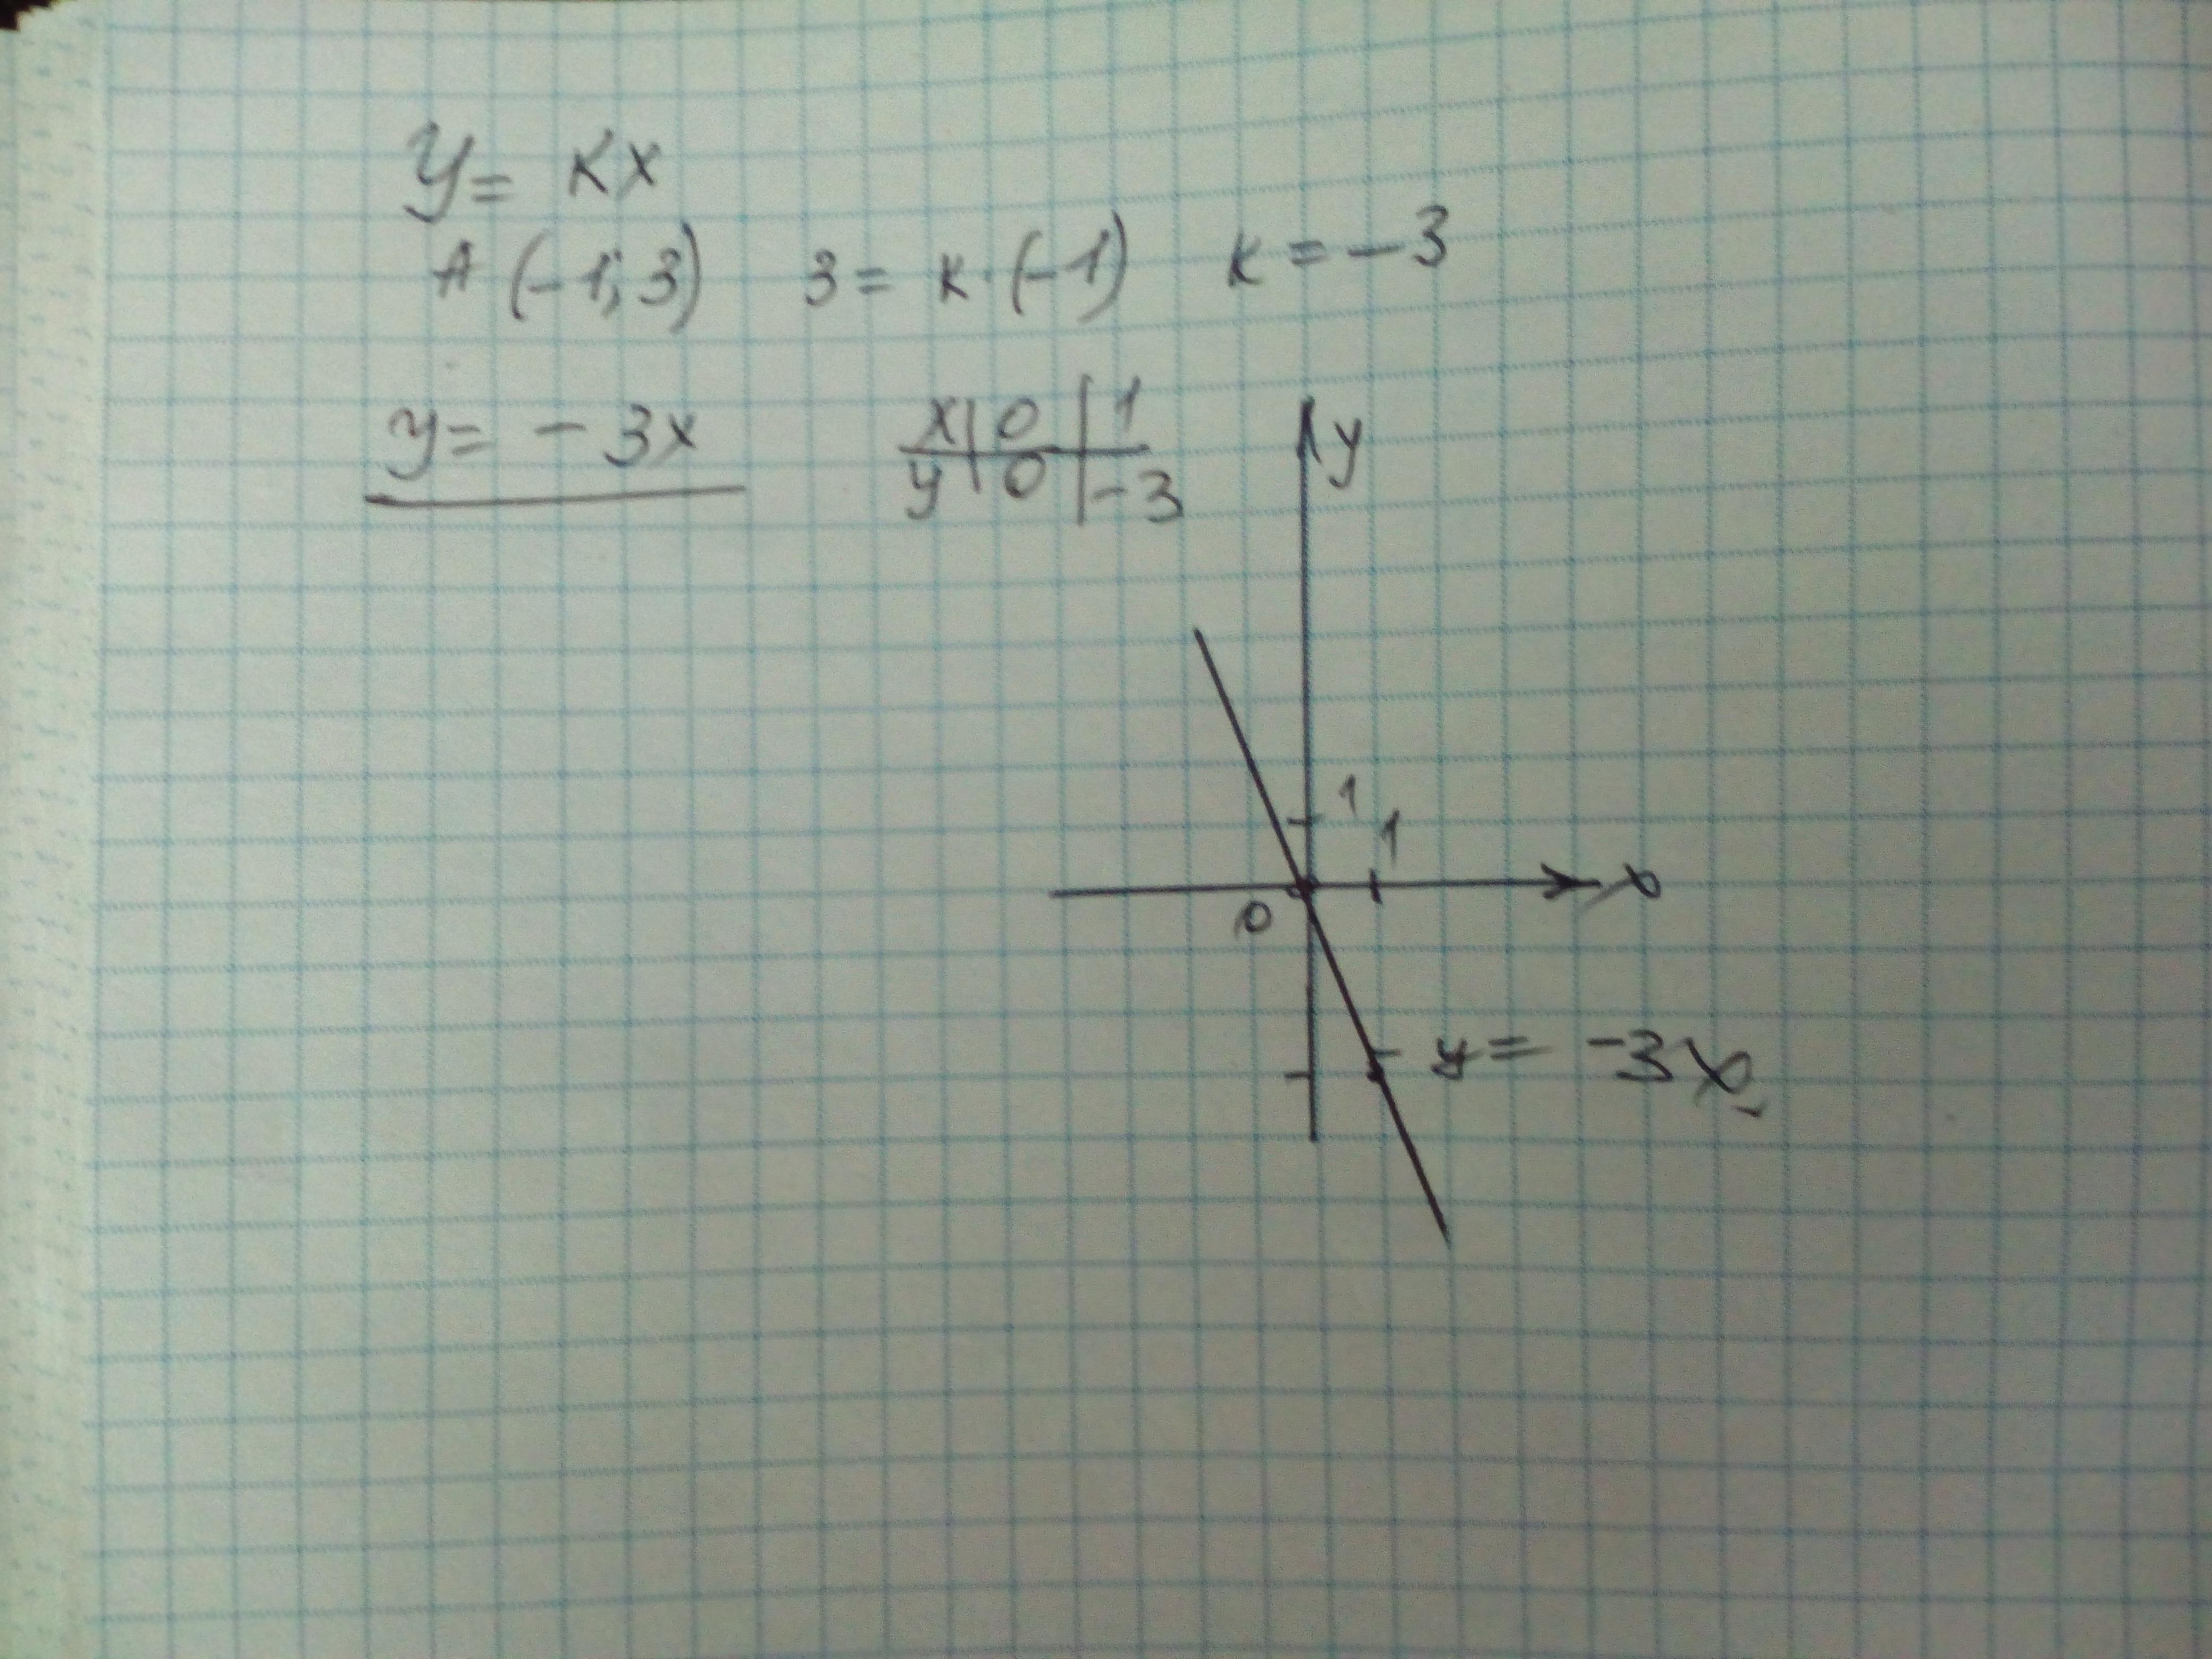 y = kx
A (-1; 3) 3 = k · (-1) k = -3
y = -3x
x | 0 | 1
y | 0 | -3
y
1
1
x
0
y = -3x